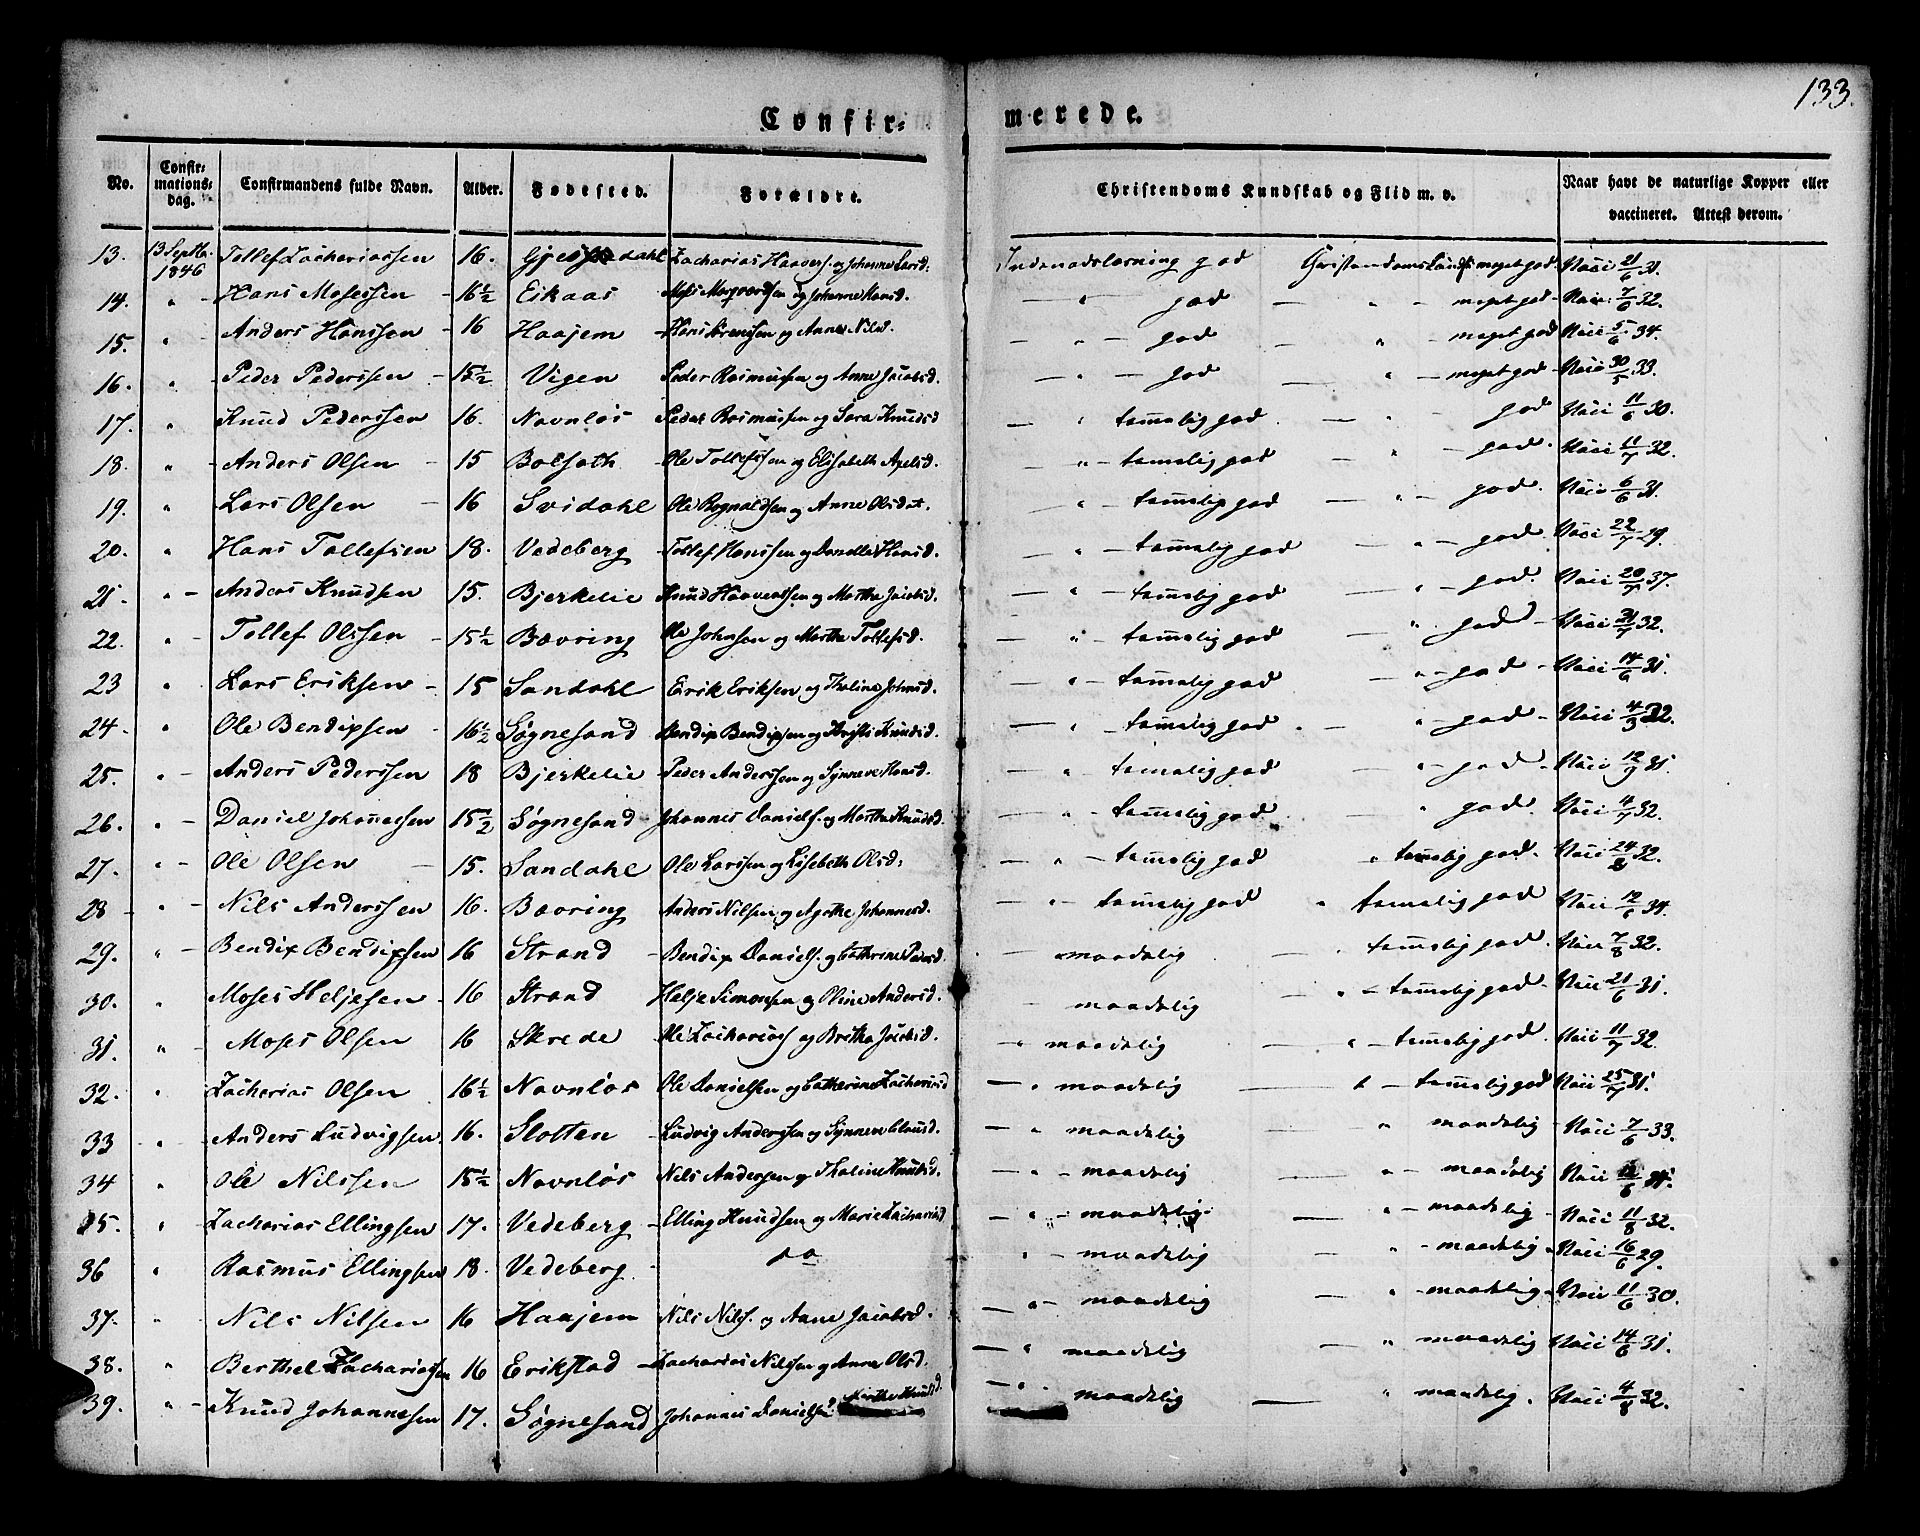 133.
Confirmerede.
No. Confirmationsdag. Confirmandens fulde Navn. Alder. Fødested. Forældre. Christendoms Kundskab og Flid m. v. Naar havt de naturlige Kopper eller vaccineret. Attest derom.
13. 13 Septbr. 1846 Tollef Zachariassen 16. Zacharias Haavers. og Johanne Larsd: Indenadslæsning god Christendomskundsk meget god. Vacc 21/6 31.
14. " Hans Mosessen 16½ Eikaas Moses Margvardsen og Johanne Hansd. " god " meget god Vacc 7/6 32.
15. " Anders Hanssen 16 Haajem Hans Sørenssen og Anne Nilsd. " god " meget god Vacc 5/6 34.
16. " Peder Pederssen 15½ Vigen Peder Rasmussen og Anne Jacobsd. " god " meget god Vacc 30/5 33.
17. " Knud Pederssen 16. Navnløs Peder Rasmussen og Sara Knudsd " tam̄elig god " god Vacc 11/6 30.
18. " Anders Olsen 15 Bolsæth Ole Tollefssen og Elisabeth Apelsd. " tam̄elig god " god. Vacc 11/7 32.
19. " Lars Olsen 16 Svidahl Ole Rognaldsen og Anne Olsdat. " tam̄elig god " god. Vacc 6/6 31.
20. " Hans Tollefsen 18. Vedeberg Tollef Hanssen og Danelle Hansd. " tam̄elig god " god. Vacc 22/7 29.
21. " Anders Knudsen 15. Bjerkelie Knud Haavertsen og Martha Jacobsd. " tam̄elig god " god. Vacc 20/7 37.
22. " Tollef Olssen 15½ Bævring Ole Johnsen og Martha Tollefsd. " tam̄elig god " god Vacc 21/7 32.
23 " Lars Eriksen 15 Sandahl Erik Eriksen og Thaline Johnsd. " tam̄elig god " god Vacc 14/6 31.
24. " Ole Bendixsen 16½ Søgnesand Bendix Bendixsen og Kristi Knudsd. " tam̄elig god " god Vacc 4/9 32.
25. " Anders Pederssen 18 Bjerkelie Peder Anderssen og Synneve Hansd. " tam̄elig god " god Vacc 12/9 31.
26. " Daniel Johan̄essen 15½ Søgnesand Johannes Daniels. og Martha Knudsd. " tam̄elig god " god. Vacc 4/7 32.
27. " Ole Olsen 15. Sandahl Ole Larssen og Lisebeth Olsd. " tam̄elig god " tam̄elig god. Vacc 24/8 32.
28 " Nils Anderssen 16. Bævring Anders Nilsen og Agathe Johannesd. " tam̄elig god " tam̄elig god Vacc 12/6 34.
29. " Bendix Bendixsen 16 Strand Bendix Daniels. og Cathrine Pedersd " maadelig " tam̄elig god. Vacc 7/8 32.
30. " Moses Heljesen 16 Strand Helje Simonsen og Oline Andersd. " maadelig " tam̄elig god Vacc 21/6 31.
31. " Moses Olsen 16 Skrede Ole Zacharias og Britha Jacobsd. " maadelig " tam̄elig god. Vacc 11/7 32.
32. " Zacharias Olsen 16½ Navnløs Ole Danielsen og Catherine Zachariasd " maadelig " tam̄elig god Vacc 25/7 31.
33 " Anders Ludvigsen. 16. Slotten Ludvig Anderssen og Synneve Clausd. " maadelig " maadelig Vacc 7/6 33.
34 " Ole Nilssen 15½ Navnløs Nils Andersen og Thaline Knudsd. " maadelig " maadelig Vacc 12/6 31.
35. " Zacharias Ellingsen 17. Vedeberg Elling Knudsen og Marie Zachariasd " maadelig " maadelig Vacc 11/8 32.
36 " Rasmus Ellingsen 18. Vedeberg do " maadelig " maadelig Vacc 16/6 29.
37. " Nils Nilsen 16 Haajem Nils Nils. og Anne Jacobsd. " maadelig " maadelig Vacc 11/6 30.
38. " Berthel Zachariassen 16 Erikstad Zacharias Nilssen og Anne Olsd. " maadelig " maadelig Vacc 14/6 31.
39. " Knud Johannesen 17. Søgnesand Johannes Danielsen Martha Knudsd. " maadelig " maadelig. Vacc 4/8 32.